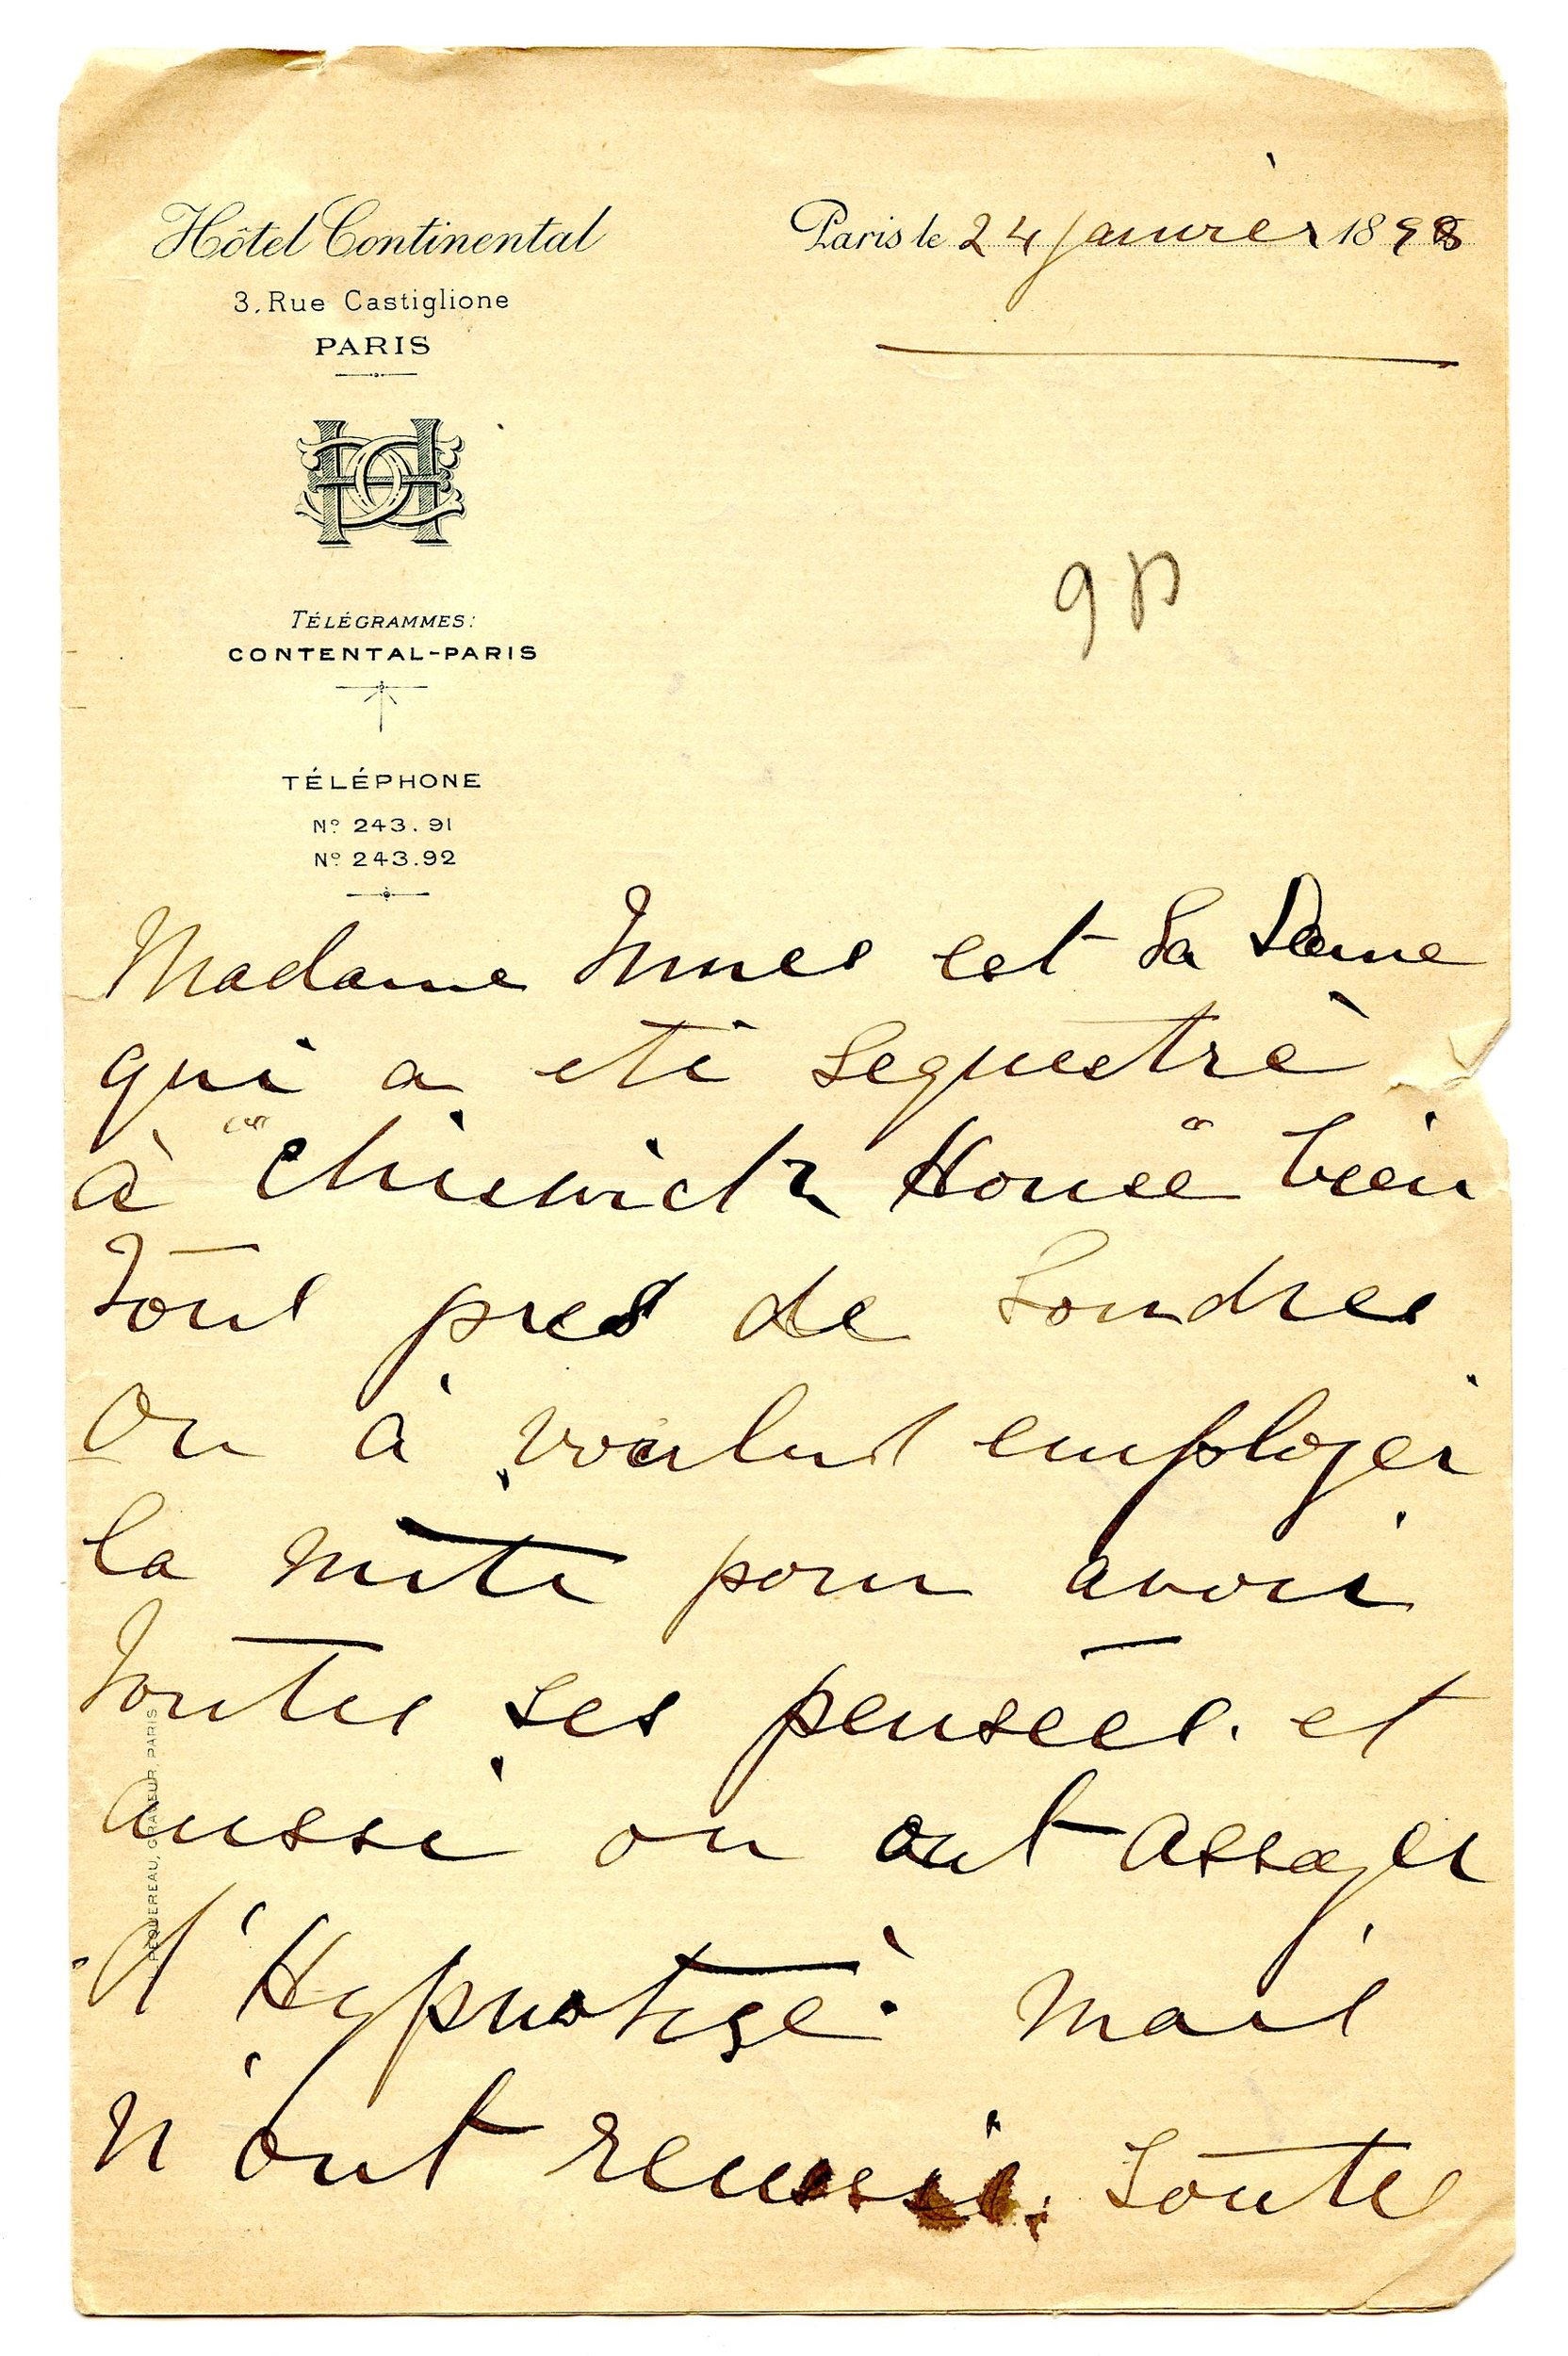 Hôtel Continental
3, Rue Castiglione
PARIS
Paris le 24 Janvier 1898
TÉLÉGRAMMES:
CONTENTAL-PARIS
TÉLÉPHONE
Nº 243.91
Nº 243.92
Madame Innes est la Dame
qui a eté sequestrè
à "Chiswick House" bien
tout pres de Londres
on à voulut employer
la pour avoir
toutes ses pensées. et
aussi on ont assayer
d'Hypnotisè. mais
n'ont reussi. toutes
PECQUEREAU, GRAVEUR, PARIS